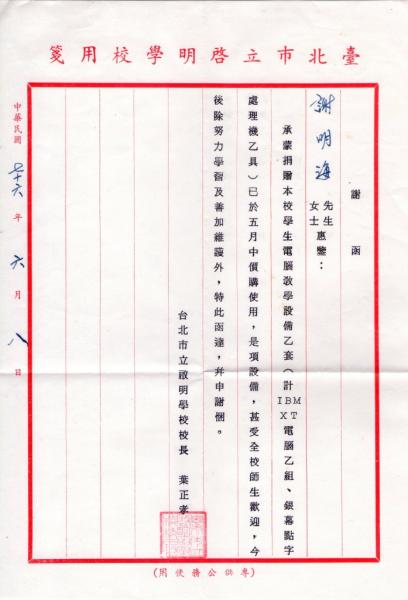 臺北市立啓明學校用箋
謝函
謝明海 先生女士惠鑒：
承蒙捐贈本校學生電腦教學設備乙套（計IBM XT電腦乙組、銀幕點字
處理機乙具）已於五月中價購使用，是項設備，甚受全校師生歡迎，今
後除努力學習及善加維護外，特此函達，并申謝悃。
台北市立啟明學校校長 葉正孝
中華民國 七十六 年 六 月 八 日
（專供公務使用）